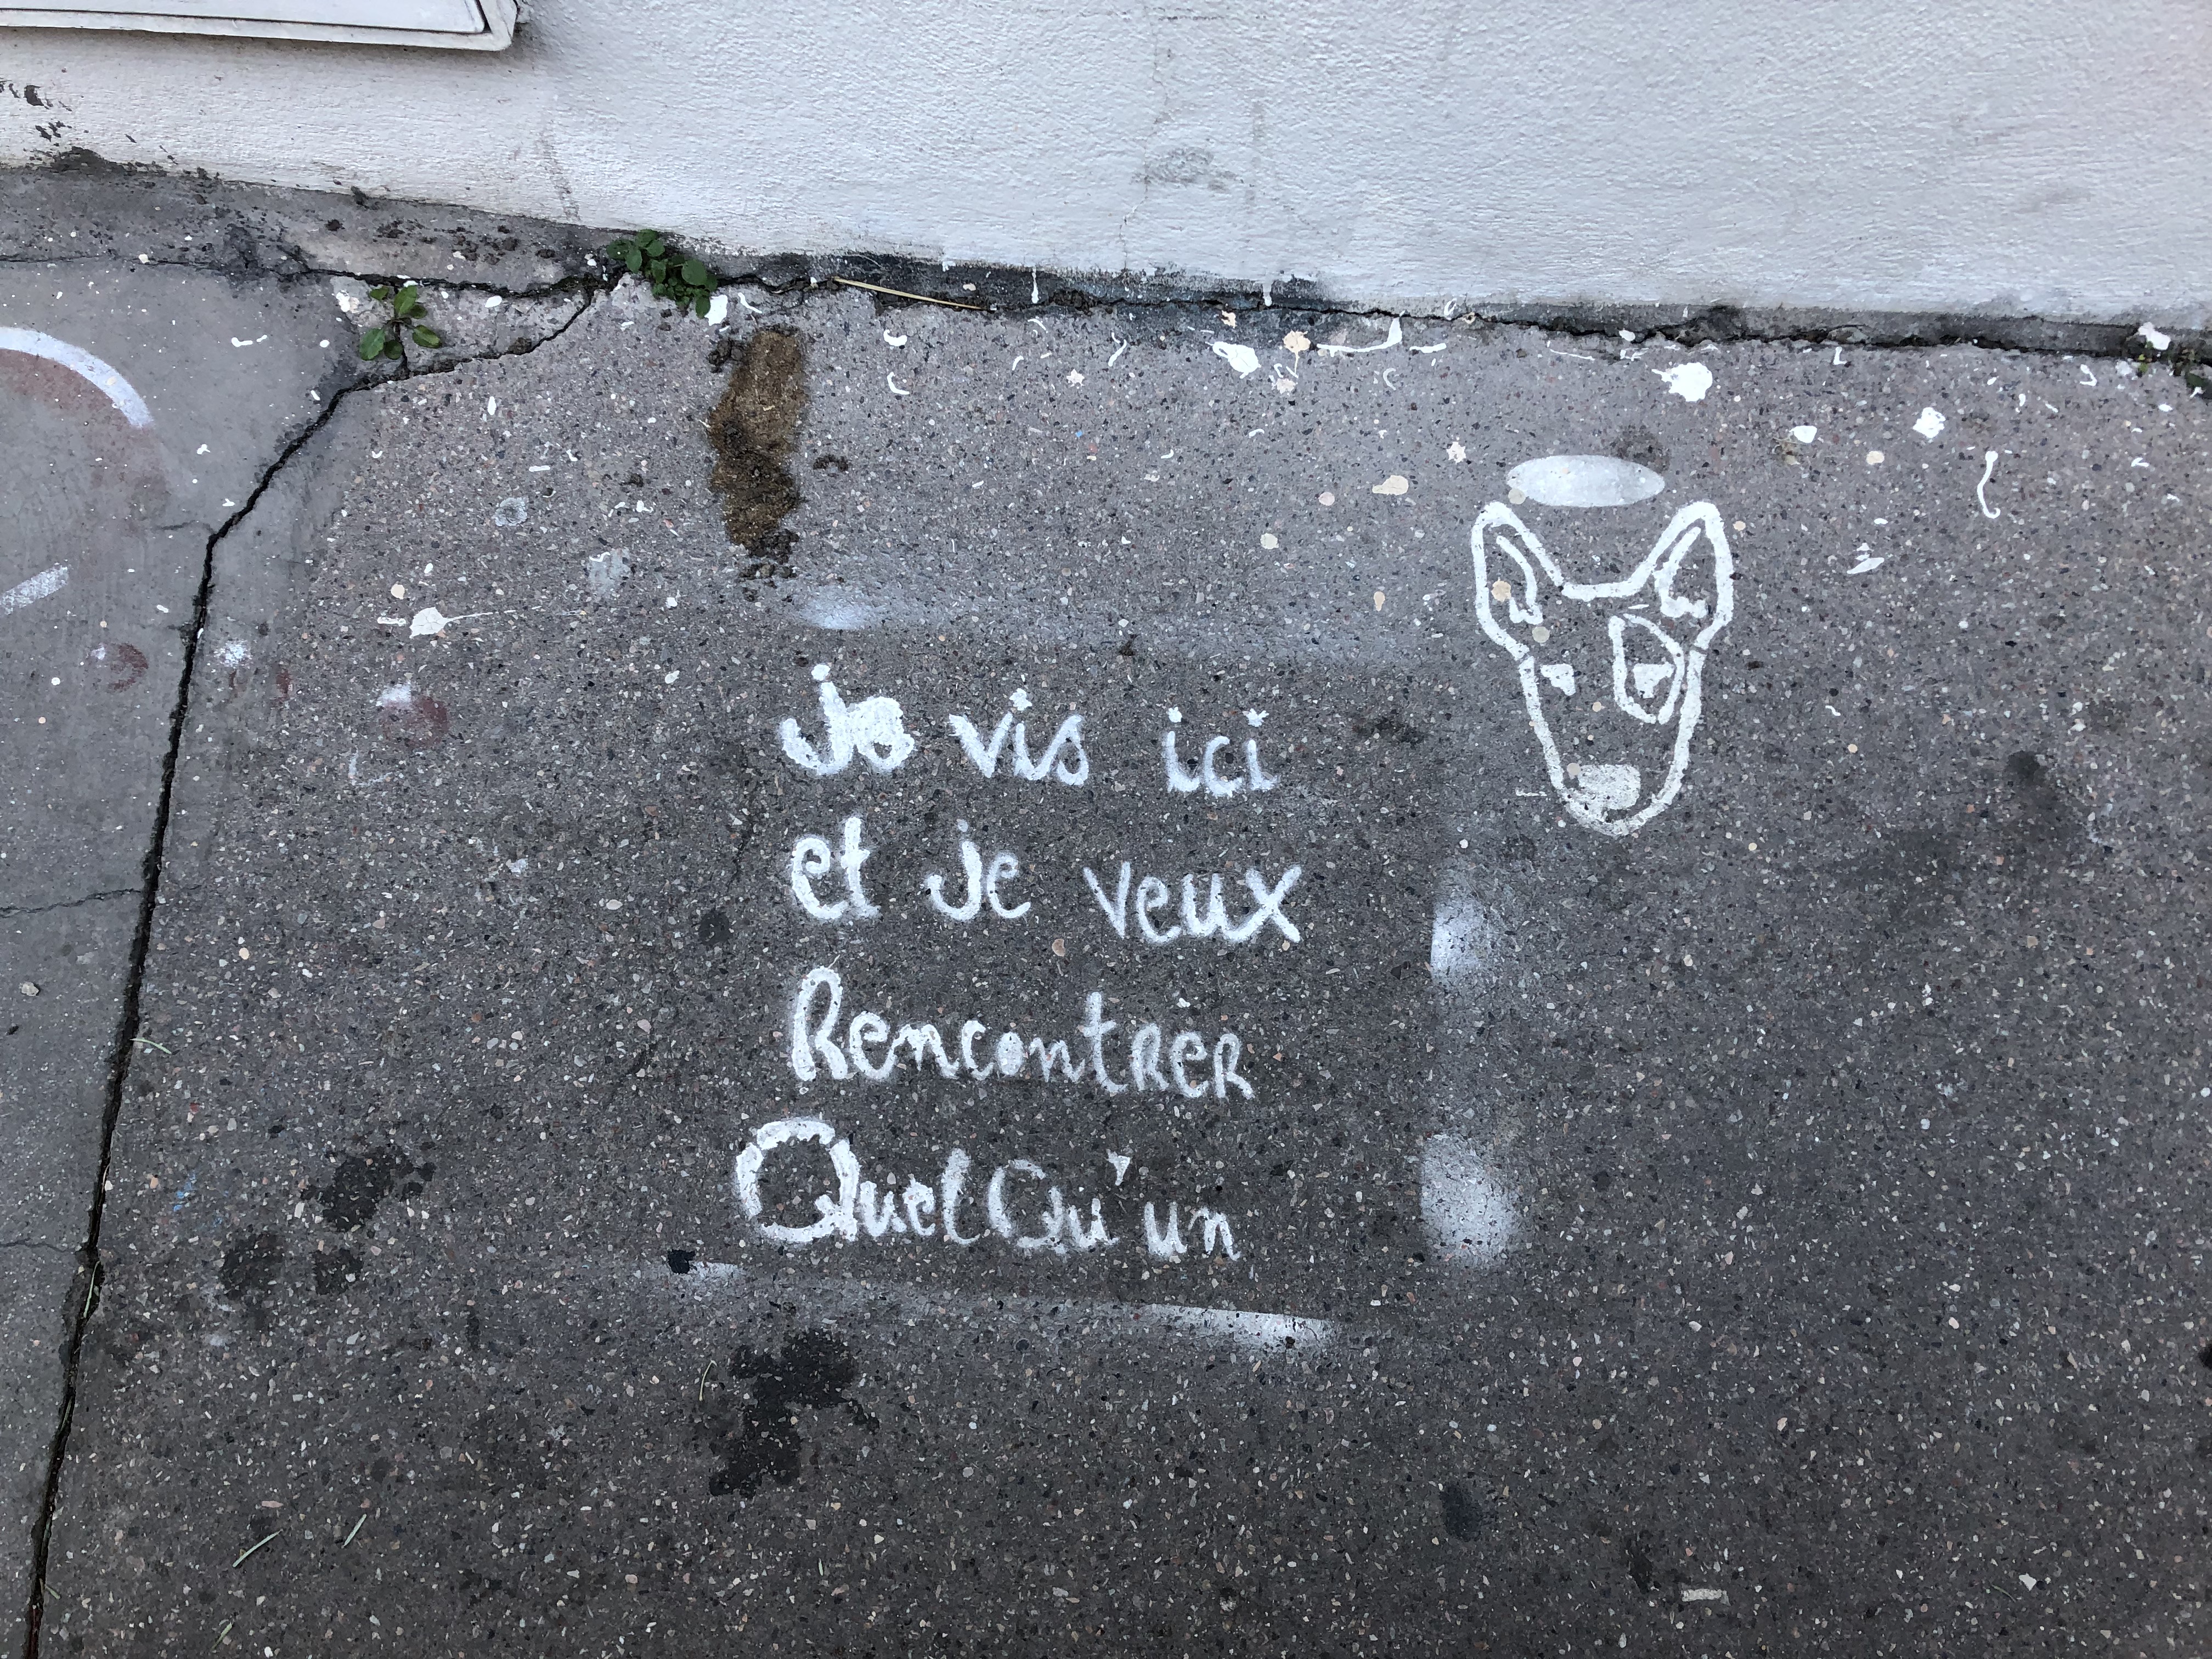 Je vis ici
et je veux
RencontRER
QuelQu'un